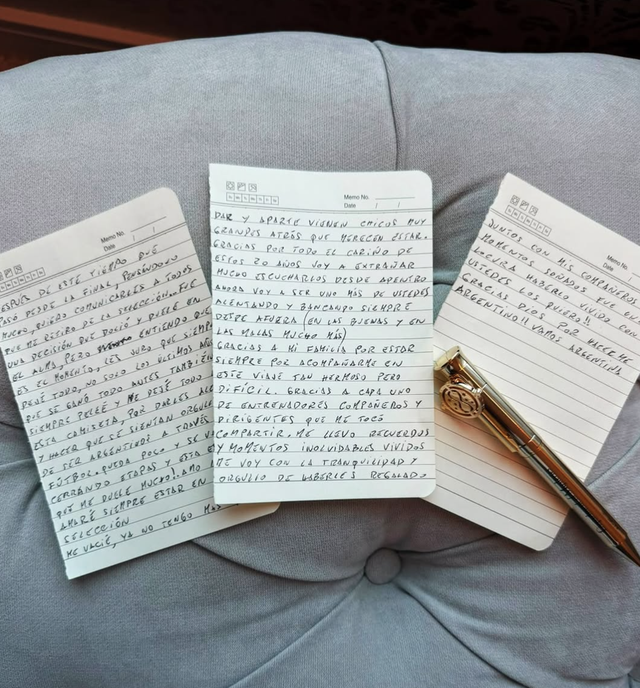 Memo No.
Date / /
ESPUÉS DE ESTE TIEMPO QUE
PASÓ DESDE LA FINAL, PENSÁNDOLO
MUCHO, QUIERO COMUNICARLES A TODOS
QUE ME RETIRO DE LA SELECCIÓN. FUE
UNA DECISIÓN QUE DOLIÓ Y DUELE EN
EL ALMA, PERO ENTIENDO QUE
ES EL MOMENTO, LES JURO QUE SIEMPRE
DEJÉ TODO, NO SOLO LOS ULTIMOS AÑOS
QUE SE GANÓ TODO, ANTES TAMBIÉN
SIEMPRE PELEÉ Y ME DEJÉ TODO
ESTA CAMISETA, POR DARLES ALE
Y HACER QUE SE SIENTAN ORGULL
DE SER ARGENTINOS A TRAVÉS
FÚTBOL. QUEDA POCO Y SE V
CERRANDO ETAPAS Y ESTA E
QUE ME DUELE MUCHO. AMO
AMARÉ SIEMPRE ESTAR EN
SELECCIÓN
ME VACIÉ, YA NO TENGO MÁS
Memo No.
Date / /
DAR Y APARTE VIENEN CHICOS MUY
GRANDES ATRÁS QUE MERECEN ESTAR.
GRACIAS POR TODO EL CARIÑO DE
ESTOS 20 AÑOS VOY A EXTRAÑAR
MUCHO ESCUCHARLOS DESDE ADENTRO
AHORA VOY A SER UNO MÁS DE USTEDES
ALENTANDO Y BANCANDO SIEMPRE
DESDE AFUERA (EN LAS BUENAS Y EN
LAS MALAS MUCHO MÁS)
GRACIAS A MI FAMILIA POR ESTAR
SIEMPRE POR ACOMPAÑARME EN
ESTE VIAJE TAN HERMOSO PERO
DIFÍCIL. GRACIAS A CADA UNO
DE ENTRENADORES COMPAÑEROS Y
DIRIGENTES QUE ME TOCÓ
COMPARTIR. ME LLEVO RECUERDOS
Y MOMENTOS INOLVIDABLES VIVIDOS
ME VOY CON LA TRANQUILIDAD Y
ORGULLO DE HABERLES REGALADO
Memo No.
Date /
JUNTOS CON MIS COMPAÑEROS
MOMENTOS SOÑADOS FUE UN
LOCURA HABERLO VIVIDO CON
USTEDES LOS QUIERO!!
GRACIAS DIOS POR HACERME
ARGENTINO!! VAMOS ARGENTINA